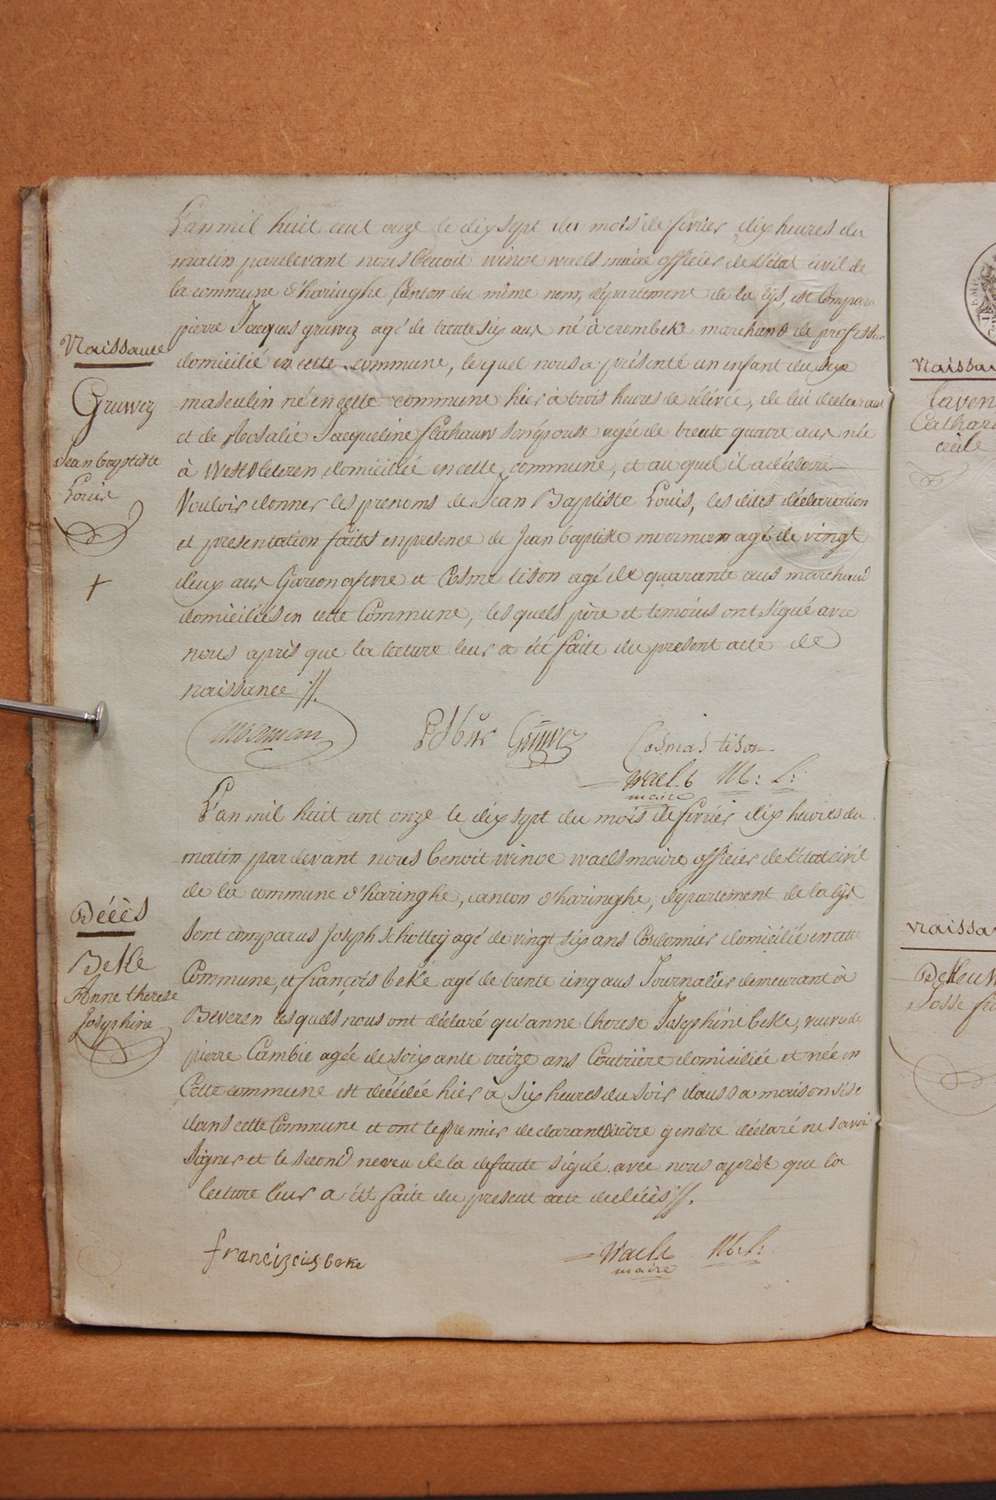 L'an mil huit cent onze le dix sept du mois de fevrier dix heures du
matin pardevant nous Benoit winoc waels maire officier de l'état civil de
la commune d'haringhe Canton du même nom, département de la lys, est Compar
Naissance
pierre Jacques gruwez agé de trente six ans né à crombeke marchand de profession
domicilié en cette commune, lequel nous a présenté un enfant du sexe
Gruwez
Jean baptiste
Louis
masculin né en cette commune hier à trois heures de rélévée, de lui declarant
et de Rosalie Jacqueline son épouse agée de trente quatre ans née
à Westvleteren domiciliée en cette commune, et au quel il a déclaré
Vouloir donner les prenoms de Jean Baptiste Louis, les dites déclaration
et presentation faites en presence de Jean baptiste moerman agé de vingt
deux ans et Cosme tison agé de quarante ans marchand
domiciliés en cette Commune, les quels père et temoins ont signé avec
nous après que la lecture leur a été faite du present acte de
naissance //.
moerman
Gruwez
Cosmas tison
waels M: L:
maire
L'an mil huit cent onze le dix sept du mois de fevrier dix heures du
matin par devant nous benoit winoc waels maire officier de l'état civil
de la commune d'haringhe, canton d'haringhe, département de la lys
Décès
Beke
Anne therese
Josephine
sont comparus Joseph Schottey agé de vingt six ans Cordonnier domicilié en cette
Commune, et françois beke agé de trente cinq ans Journalier demeurant à
Beveren lesquels nous ont déclaré qu'anne therese Josephine beke, veuve de
pierre Cambie agée de soixante treize ans Couturière domiciliée et née en
Cette commune est décédée hier à six heures du soir dans sa maison sise
dans cette Commune et ont le premier declarant gendre déclaré ne savoir
signer et le second neveu de la defunte signé avec nous après que la
lecture leur a été faite du present acte de décès //.
franciscus beke
Waels M: L:
maire
Naissa
Cathar
cécile
Naissa